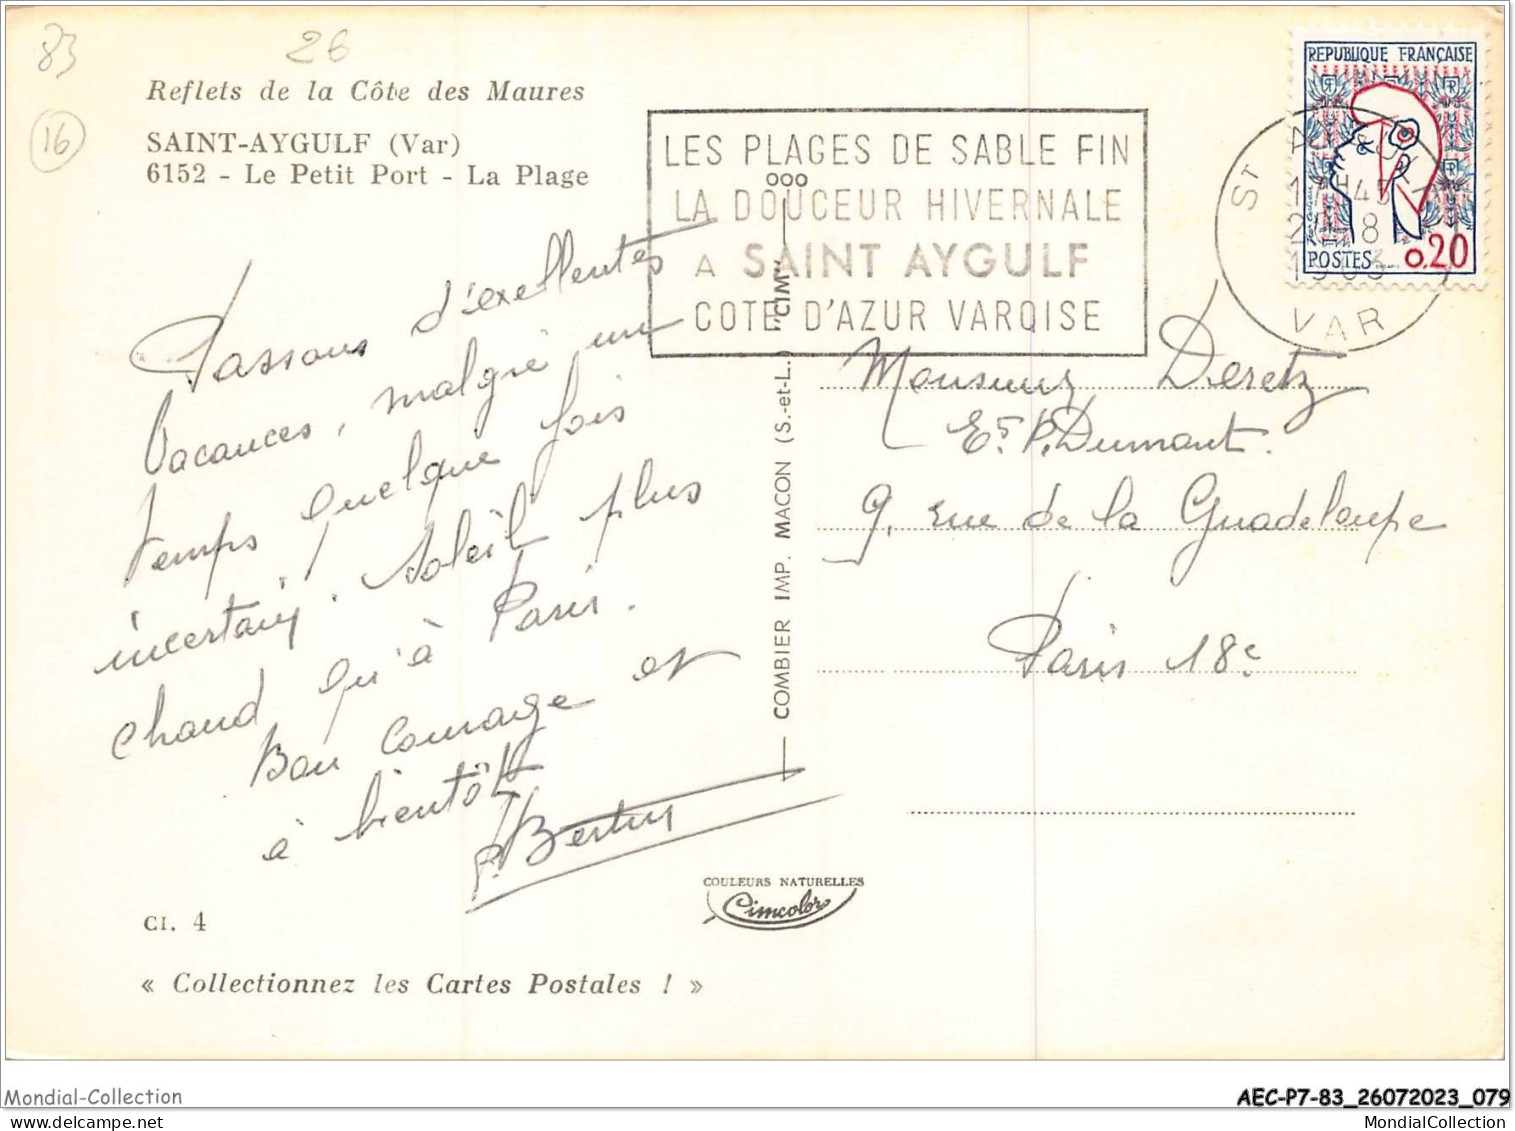 83
26
16
Reflets de la Côte des Maures
SAINT-AYGULF (Var)
6152 - Le Petit Port - La Plage
Passons d'exellentes
Vacances, malgré un
temps quelque fois
incertain. Soleil plus
chaud qu'à Paris.
Bon courage et
à bientôt
Bertin
CI. 4
« Collectionnez les Cartes Postales ! »
LES PLAGES DE SABLE FIN
LA DOUCEUR HIVERNALE
A SAINT AYGULF
COTE D'AZUR VAROISE
COMBIER IMP. MACON (S.-et-L.) "CIM"
COULEURS NATURELLES
Cimcolor
REPUBLIQUE FRANÇAISE
POSTES 0,20
ST AYGULF
VAR
Monsieur Deretz
Ets P. Dumont.
9, rue de la Guadeloupe
Paris 18e
Mondial-Collection
AEC-P7-83_26072023_079
MondialCollection